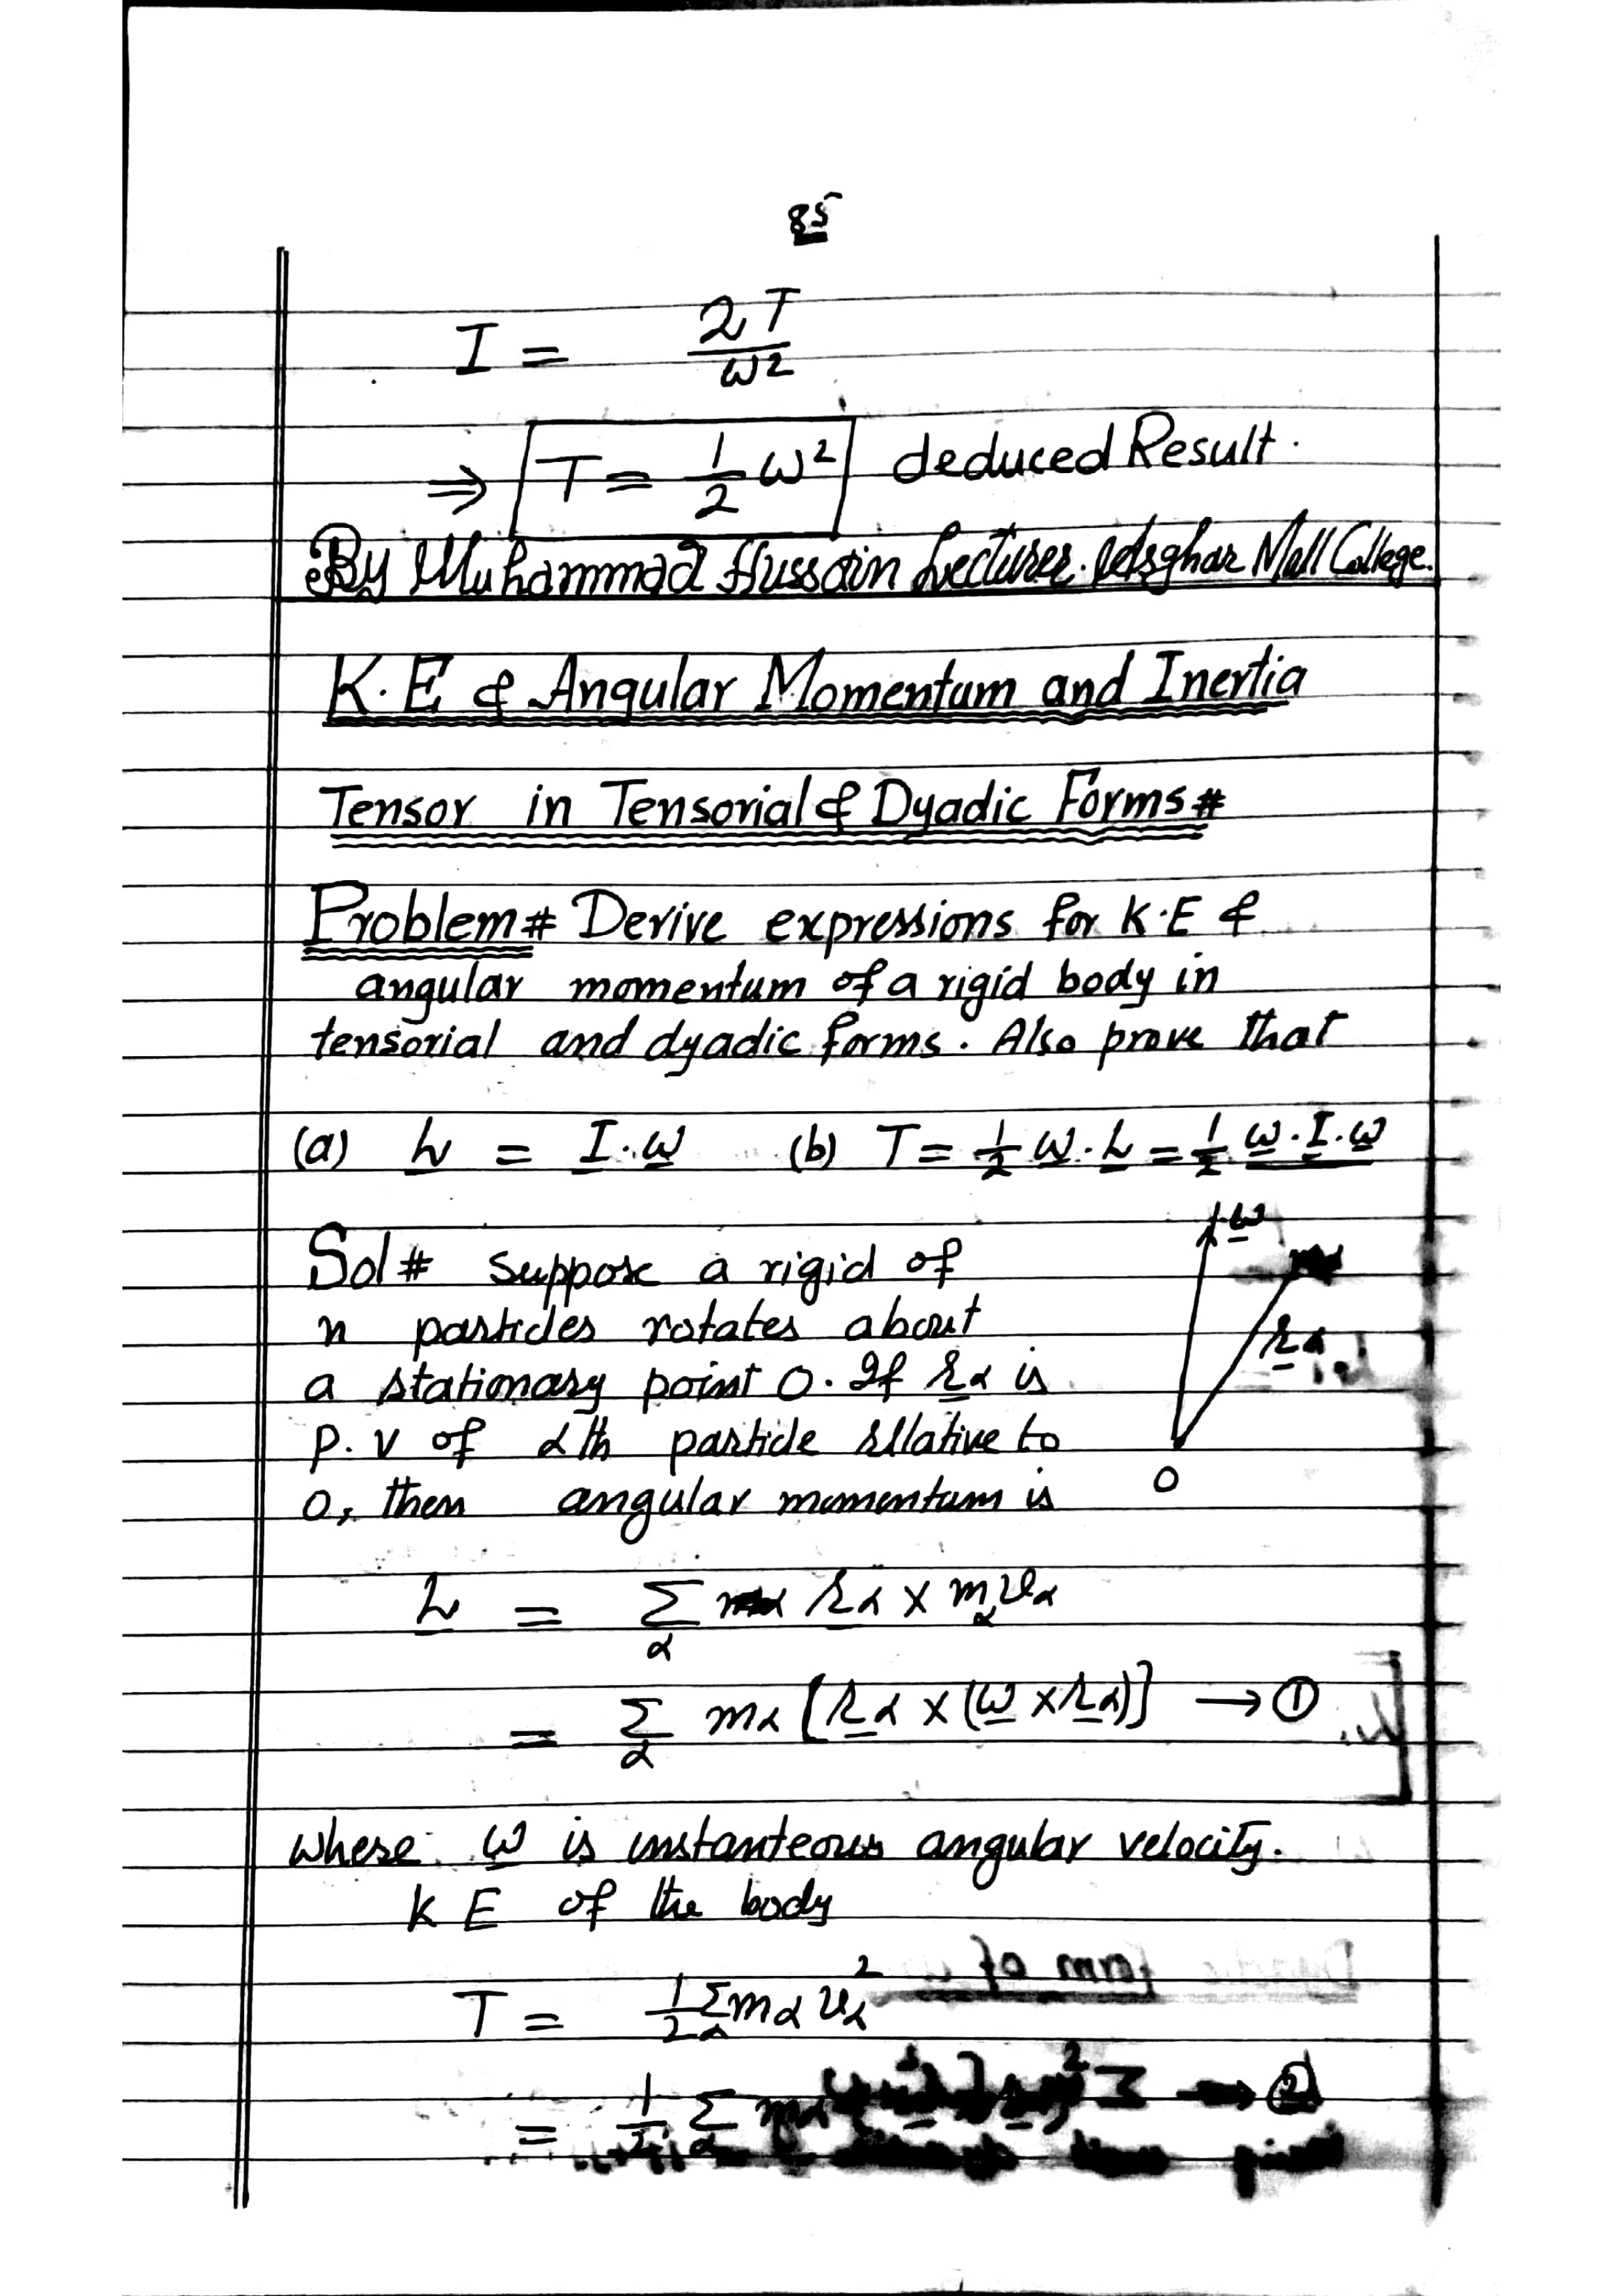 85
I = 2T/ω²
⇒ T = 1/2 ω² deduced Result.
By Muhammad Hussain Lecturer. Asghar Mall College.
K.E & Angular Momentum and Inertia
Tensor in Tensorial & Dyadic Forms #
Problem # Derive expressions for K.E &
angular momentum of a rigid body in
tensorial and dyadic forms. Also prove that
(a) L = I.ω (b) T = 1/2 ω.L = 1/2 ω.I.ω
ω
Sol # Suppose a rigid of
n particles rotates about
rα
a stationary point O. If rα is
p.v of αth particle rllative to
O
O, then angular momentum is
L = Σα rα × mα vα
= Σα mα [rα × (ω × rα)] → ①
where ω is instanteous angular velocity.
K E of the body
T = 1/2 Σα mα vα²
= 1/2 Σα mα → ②